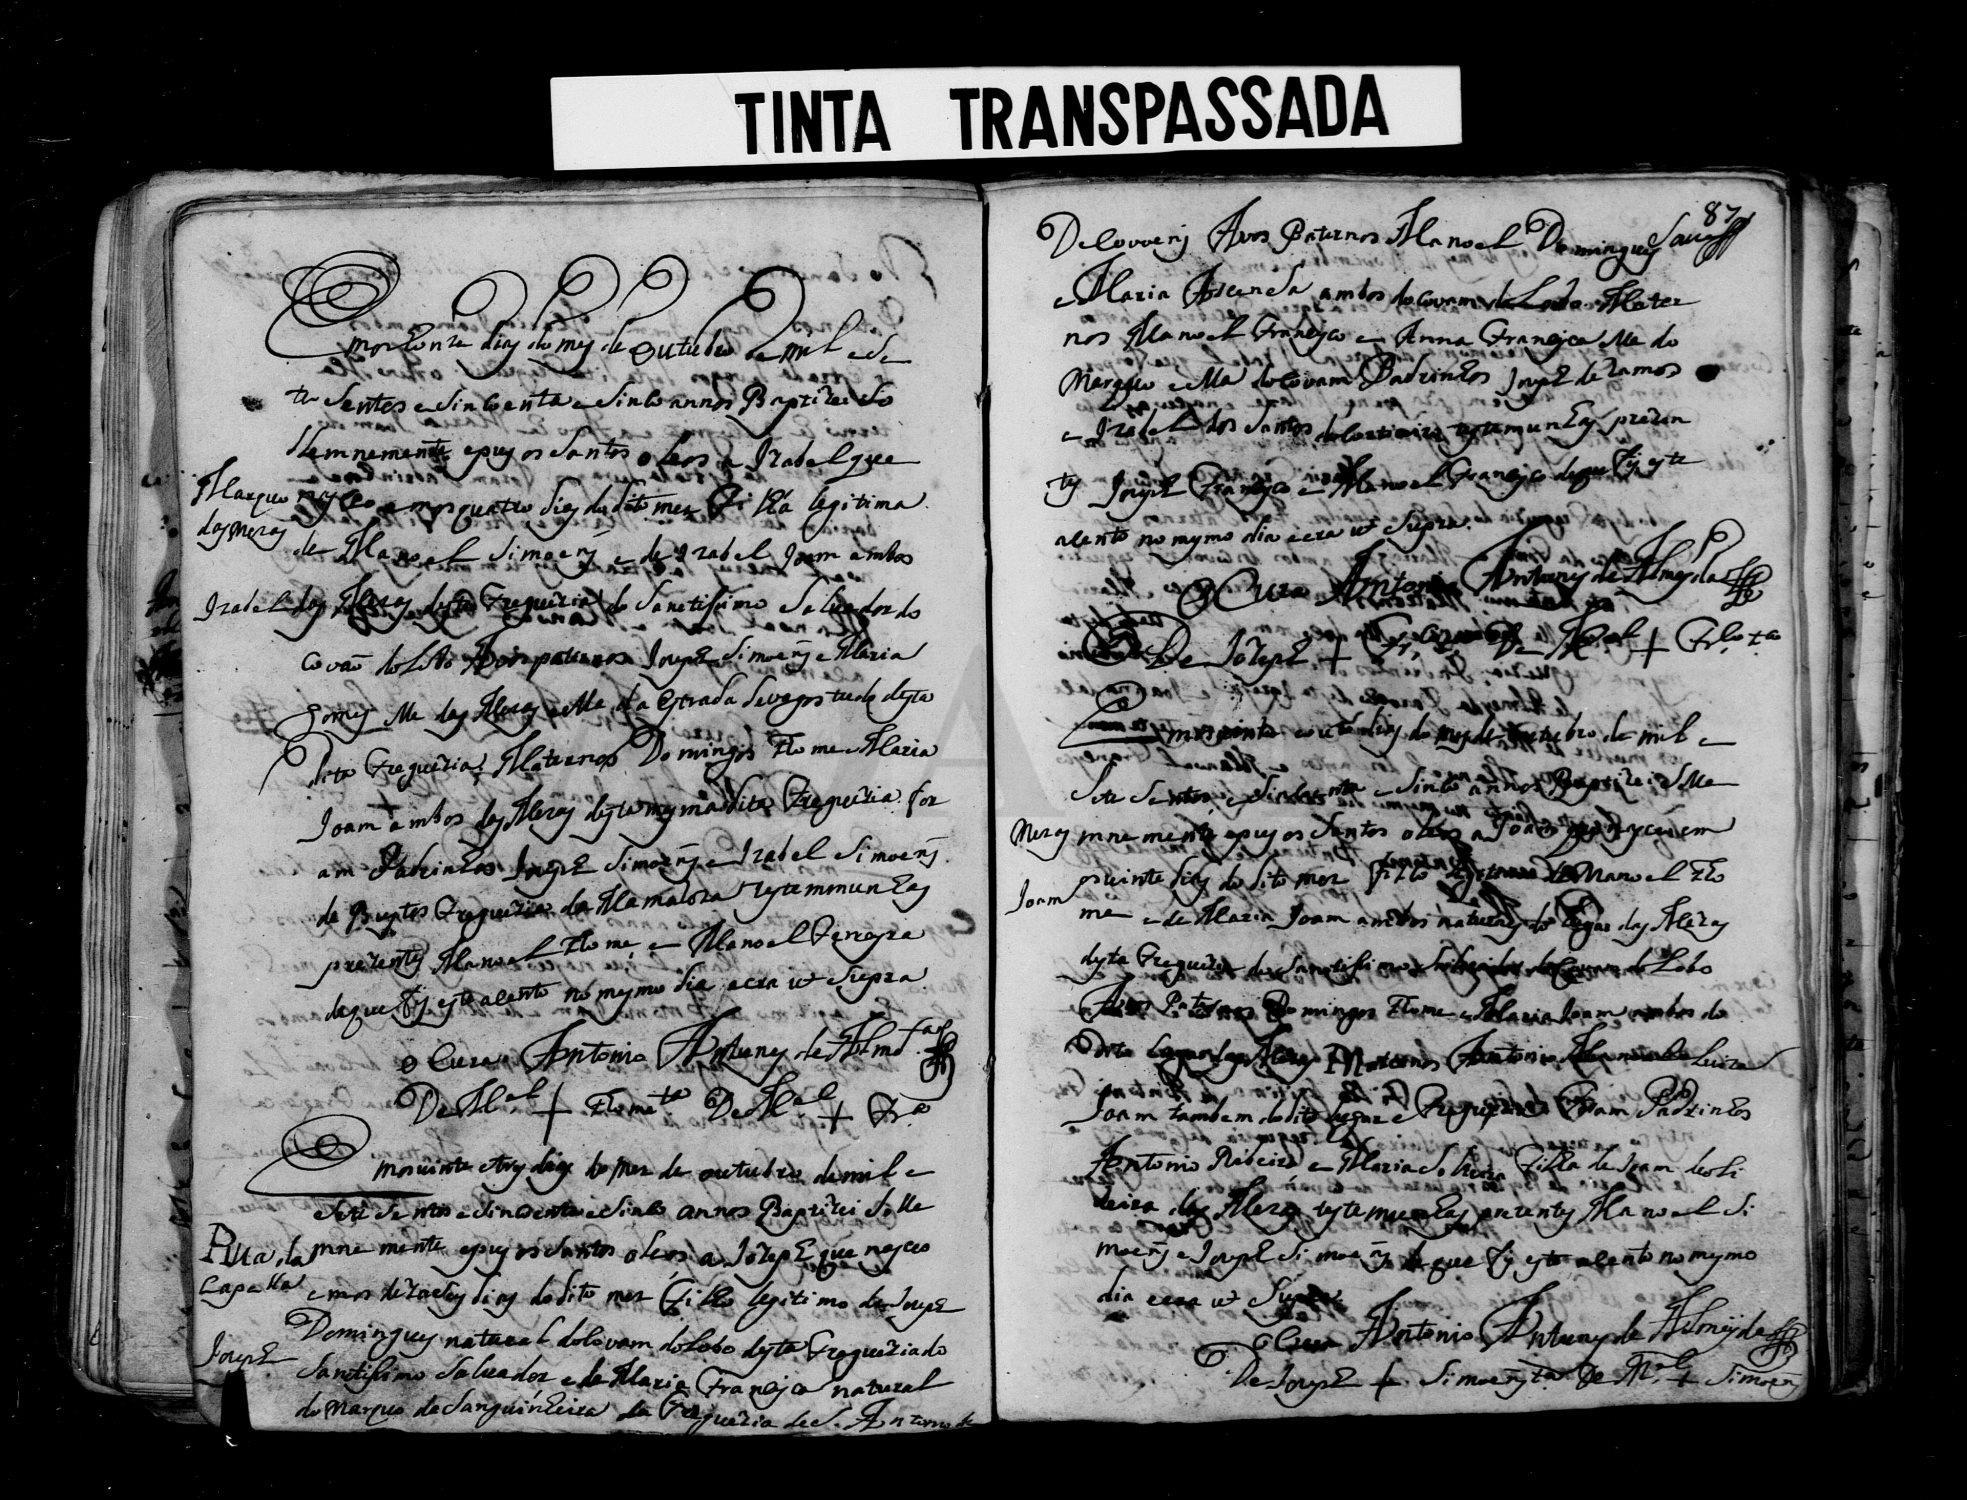 TINTA TRANSPASSADA
Em os onze dias do mes de outubro de mil e se
te sentos e sincoenta e sinco annos Baptizei so
llemnemente e pus os santos oleos a Izabel que
Marquo
das Mezas
nasceo em os quatro dias do dito mes Filha legitima
de Manoel Simoens e de Izabel Joam ambos
Izabel
das Mezas desta Freguezia do Santissimo Salvador do
Covaõ do Lobo Avós paternos Joseph Simoens e Maria
Gomes elle das Mezas e ella da Estrada de vagos tudo desta
dita Freguezia Maternos Domingos Thome e Maria
Joam ambos das Mezas desta mesma dita Freguezia for
am Padrinhos Joseph Simoens e Izabel Simoens
de Bustos Freguezia da Mamaloza testemmunhas
prezentes Manoel Thome e Manoel Ferreyra
de que fis este asento no mesmo dia e era ut supra
o Cura Antonio Antunes de Almda
De Mel + Thome ta De Mel + Fra
Em os vinte e tres dias do mes de outubro de mil e
sete sentos e sincoenta e sinco annos Baptizei solle
Rua da
Capella
mnemente e pus os santos oleos a Jozeph que nasceo
em os dezaseis dias do dito mes Filho legitimo de Joseph
Joseph
Domingues natural do Covam do Lobo desta Freguezia do
Santissimo Salvador e de Maria Francisca natural
do Marquo da Sanguinheira da Freguezia de S. Antonio de
87
De Covoens Avos Paternos Manoel Domingues
e Maria ambos do Covam do Lobo Mater
nos Manoel Francisco e Anna Francisca elle do
Marquo e ella do Covam Padrinhos Joseph de Ramos
e Izabel dos Santos testemunhas prezen
tes Joseph Francisco e Manoel Francisco de que fis este
asento no mesmo dia e era ut supra.
O Cura Antonio Antunes de Almeyda
De Jozeph + Frco De Mel + Frco ta
Em os vinte e outo dias do mes de outubro de mil e
sete sentos e sincoenta e sinco annos Baptizei solle
Mezas
mnemente e pus os santos oleos a Joam que nasceu em
os vinte dias do dito mes Filho legitimo de Manoel Tho
Joam
me e de Maria Joam ambos naturaes do lugar das Mezas
desta Freguezia do Santissimo Salvador do Covam do Lobo
Avos Paternos Domingos Thome e Maria Joam ambos do
dito lugar das Mezas Maternos Antonio e Luiza
Joam tambem do dito lugar e Freguezia Foram Padrinhos
Antonio Ribeiro e Maria de oliveira Filha de Joam de oli
veira das Mezas testemunhas prezentes Manoel Si
moens e Joseph Simoens de que fis este asento no mesmo
dia e era ut Supra
o Cura Antonio Antunes de Almeyda
De Joseph + Simoens ta De Mel + Simoens